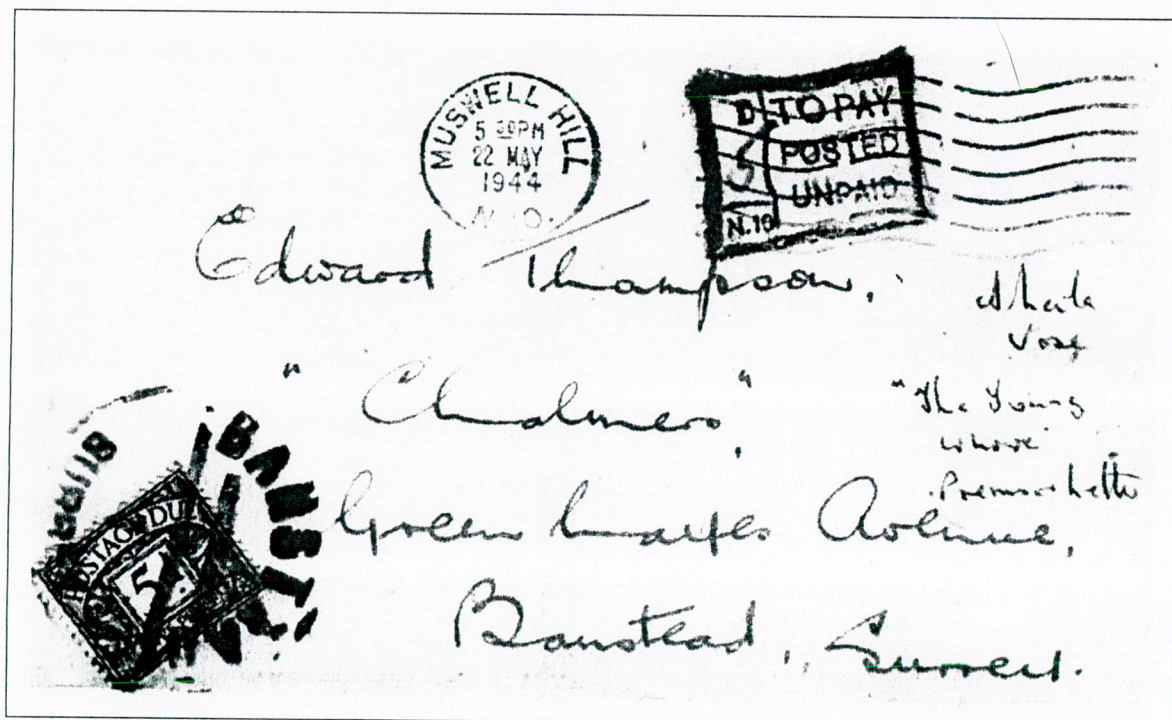 MUSWELL HILL
5 30PM
22 MAY
1944
N.10.
D TO PAY
5 POSTED
UNPAID
N.10
Edward Thompson,
"Chalmers",
Green Avenue,
Banstead, Surrey.
Sheila
"The Young
Letter
BANST
POSTAGE DUE
5D.